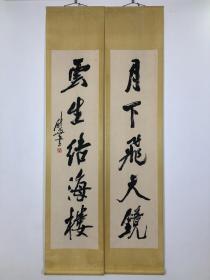 月下飛天鏡
雲生結海樓